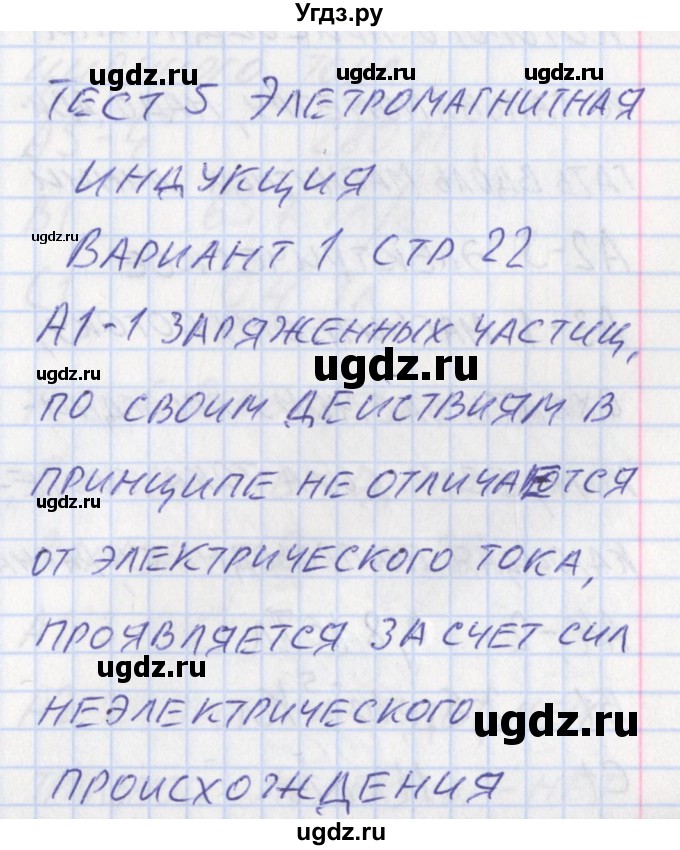 Угдз.ру
ugdz.ru ugdz.ru
ТЕСТ 5 ЭЛЕТРОМАГНИТНАЯ
ИНДУКЦИЯ
ugdz.ru
ВАРИАНТ 1 СТР 22
А1-1 ЗАРЯЖЕННЫХ ЧАСТИЦ,
ugdz.ru ugdz.ru
ПО СВОИМ ДЕИСТВИЯМ В
ПРИНЦИПЕ НЕ ОТЛИЧАЮТСЯ
ugdz.ru
ОТ ЭЛЕКТРИЧЕСКОГО ТОКА,
ПРОЯВЛЯЕТСЯ ЗА СЧЕТ СИЛ
ugdz.ru
НЕЭЛЕКТРИЧЕСКОГО
ugdz.ru
ПРОИСХОЖДЕНИЯ
ugdz.ru